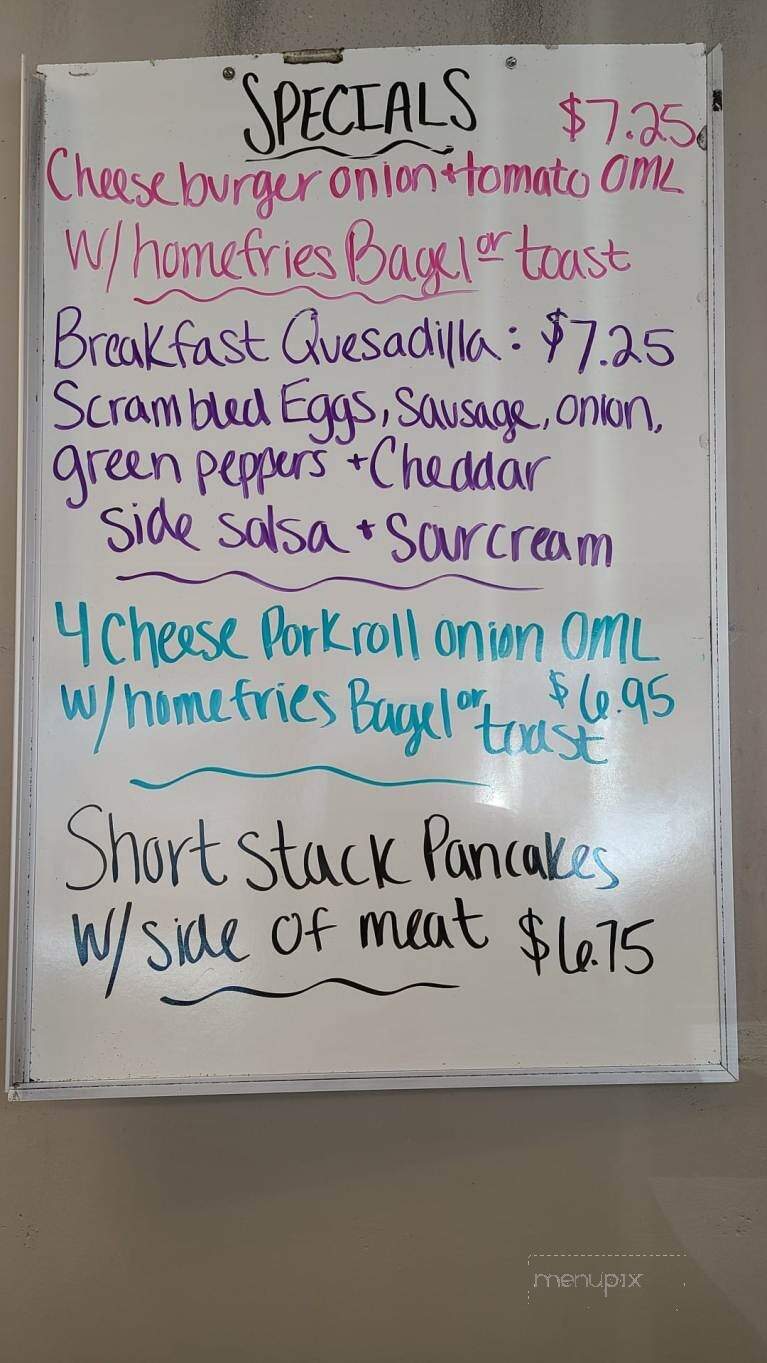 SPECIALS
$7.25
Cheeseburger onion + tomato OML
W/homefries Bagel or toast
Breakfast Quesadilla: $7.25
Scrambled Eggs, Sausage, onion,
green peppers + Cheddar
side salsa + Sour cream
4 Cheese Porkroll onion OML
W/homefries Bagel or toast $6.95
Short Stack Pancakes
W/side of meat $6.75
menupix